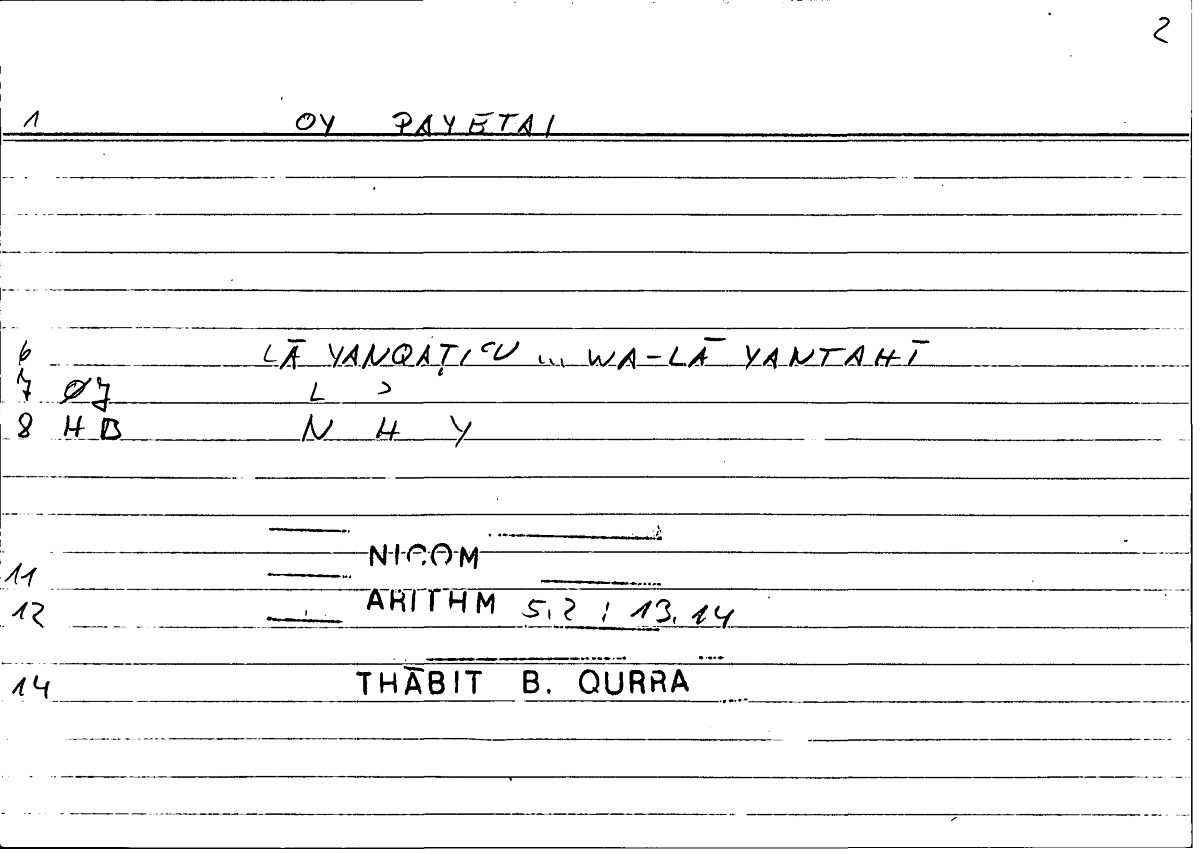 2
1 OY PAYETAI
6 LĀ YANQAṬIʿU ... WA-LĀ YANTAHĪ
7 ØJ L ʾ
8 HB N H Y
NICOM
11
ARITHM 5,2 ; 13.14
12
14 THĀBIT B. QURRA